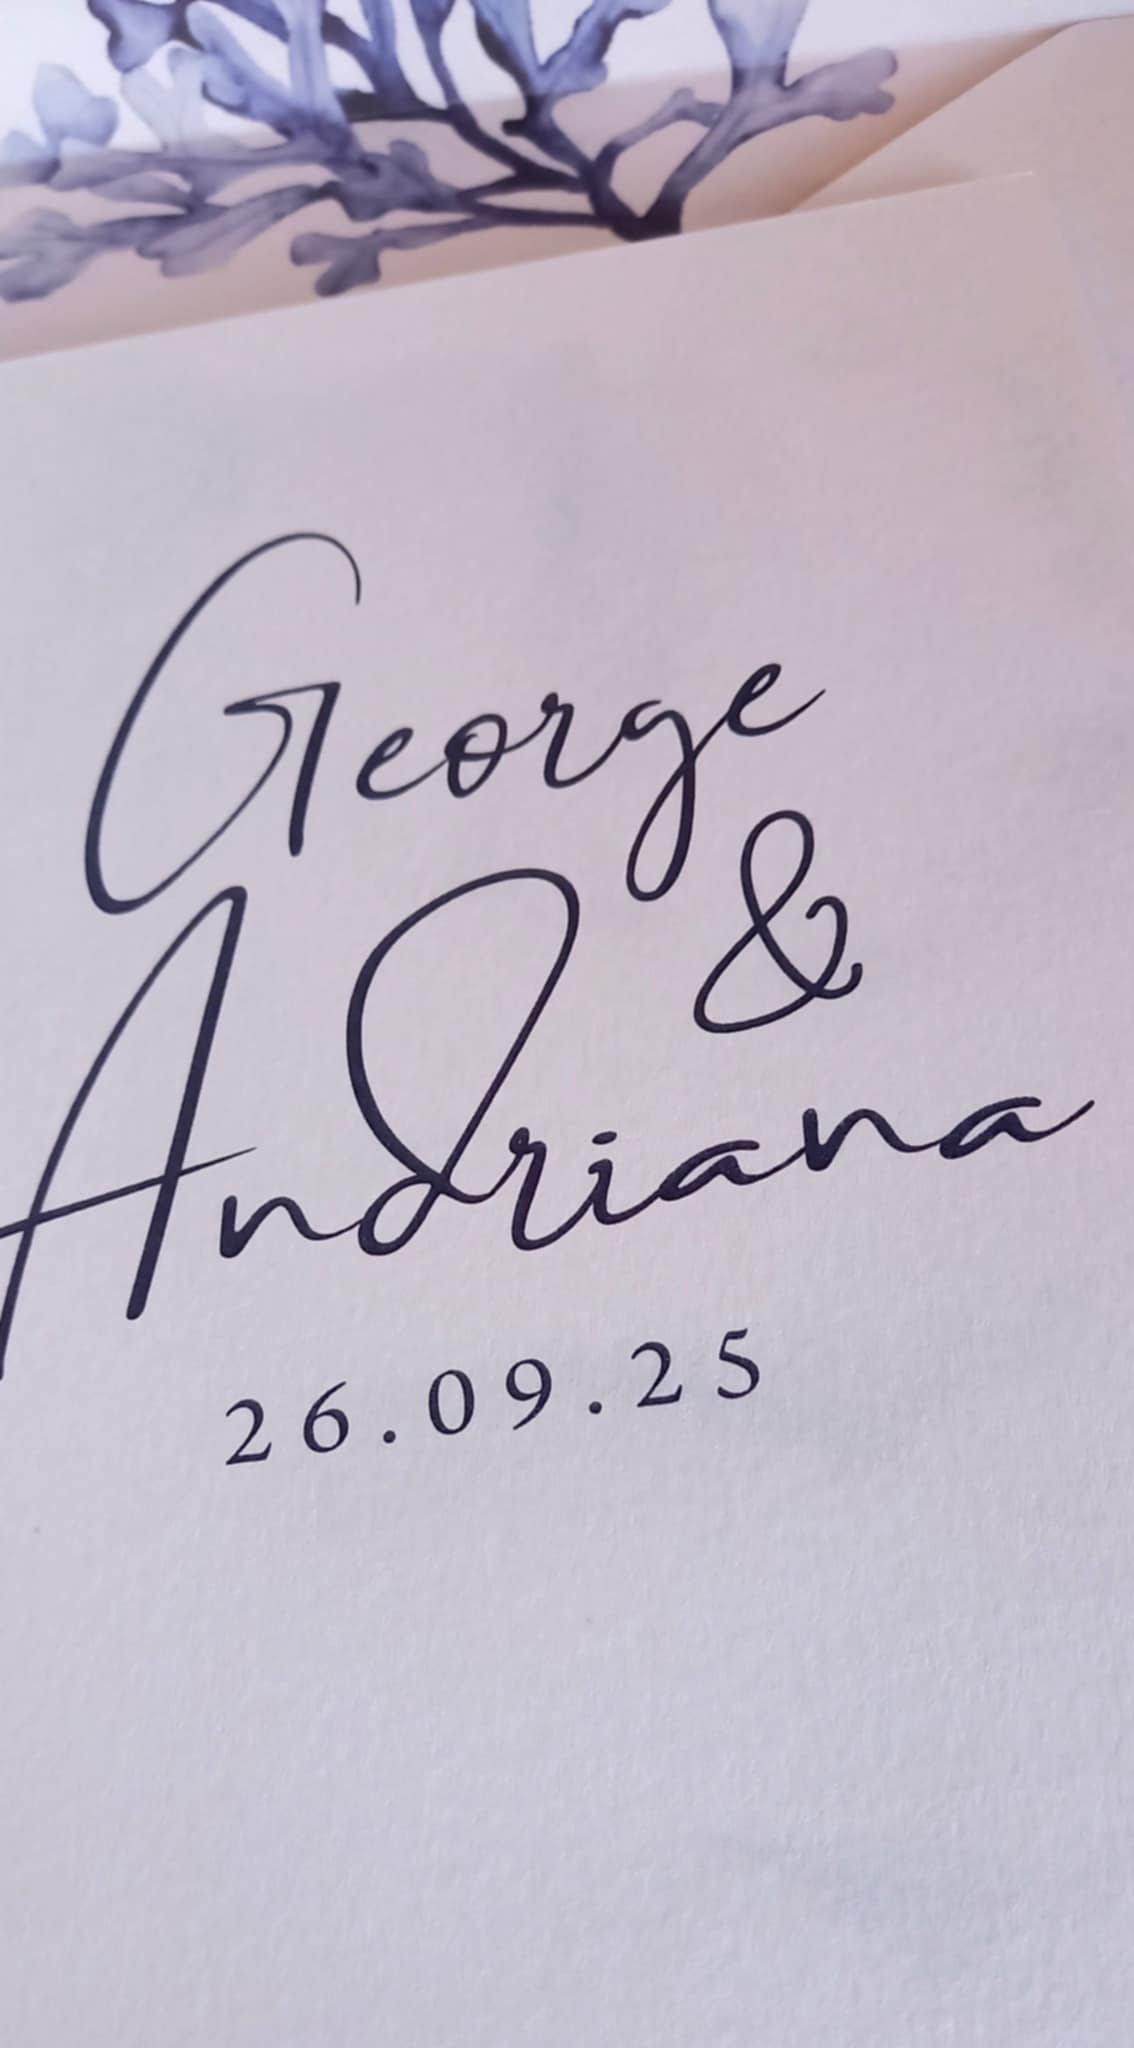 George
&
Andriana
26.09.25